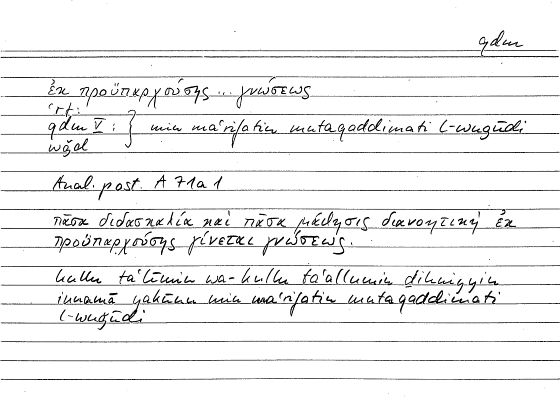 qdm
ἐκ προϋπαρχούσης ... γνώσεως
ʿrf:
qdm V : } min maʿrifatin mutaqaddimati l-wuǧūdi
wǧd
Anal. post. A 71a1
πᾶσα διδασκαλία καὶ πᾶσα μάθησις διανοητική ἐκ
προϋπαρχούσης γίνεται γνώσεως.
kullu taʿlīmin wa-kullu taʿallumin ḏihnīyin
innamā yakūnu min maʿrifatin mutaqaddimati
l-wuǧūdi